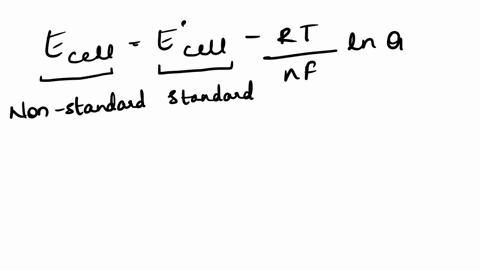 E cell = E° cell - RT/nF ln Q
Non-standard standard